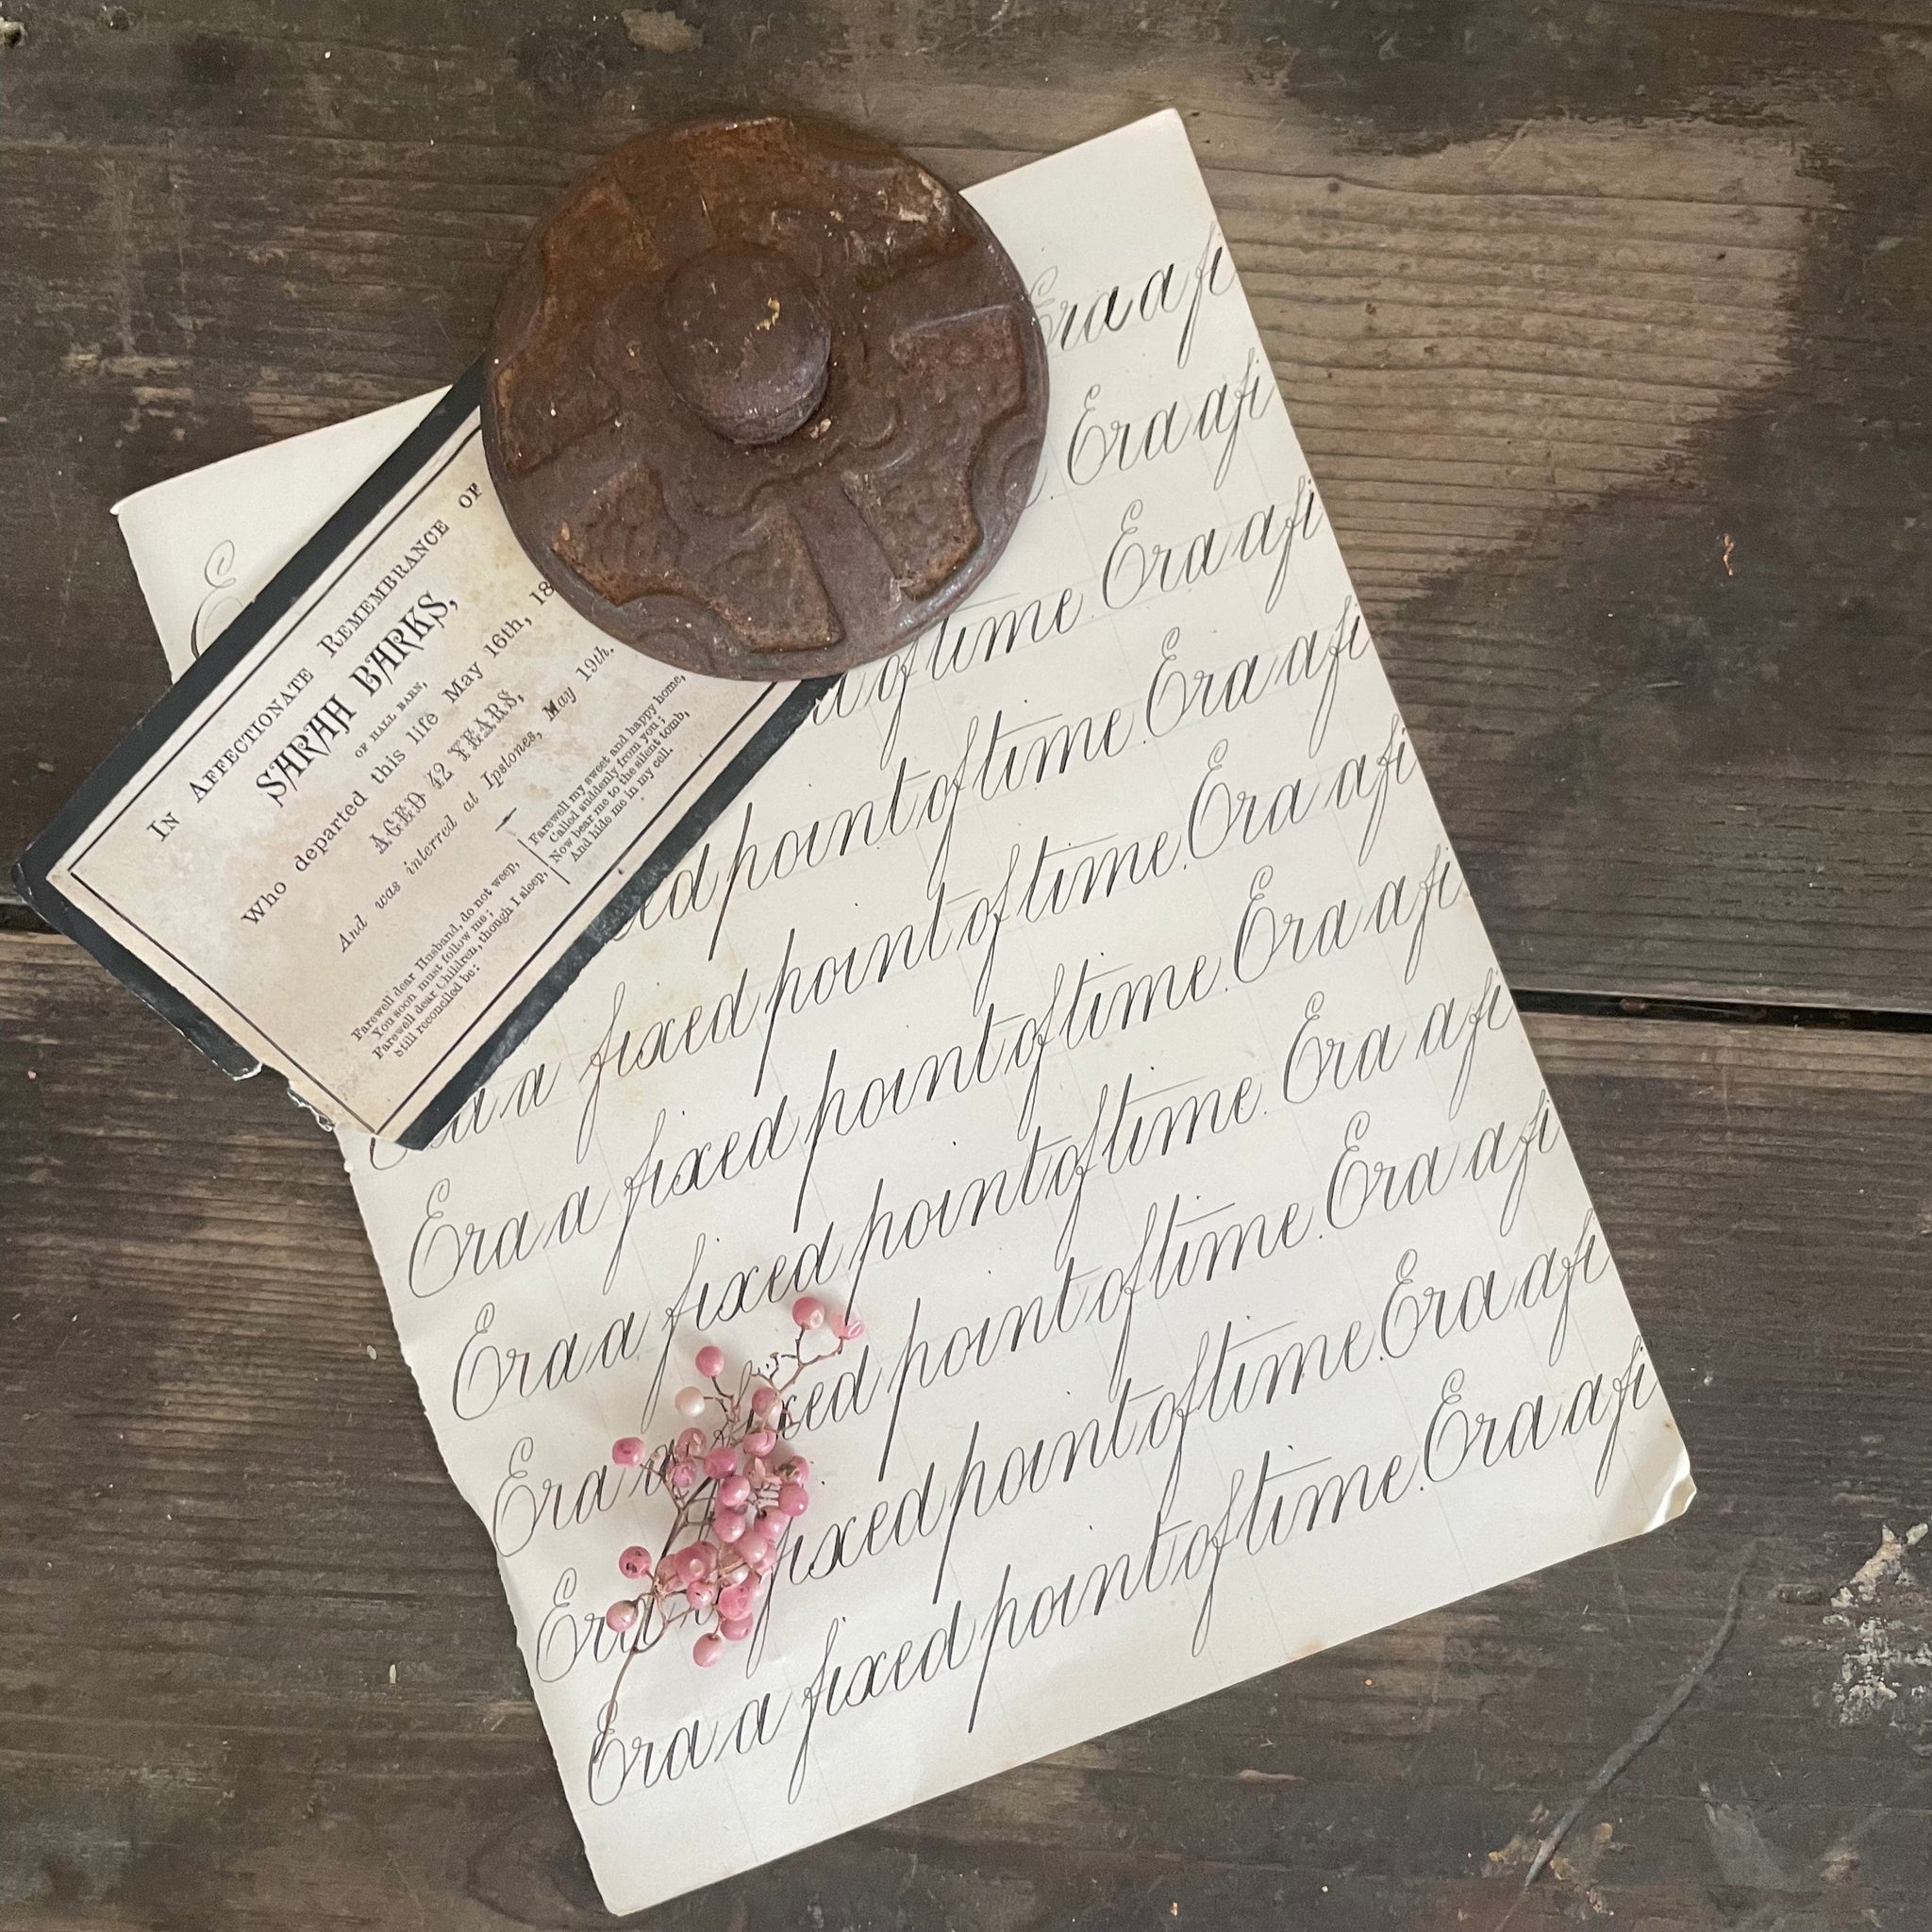 IN AFFECTIONATE REMEMBRANCE OF
SARAH BARKS,
OF HALL BARN,
Who departed this life May 16th, 18
AGED 42 YEARS,
And was interred at Ipstones, May 19th.
Farewell dear Husband, do not weep,
You soon must follow me;
Farewell dear Children, though I sleep,
Still reconciled be:
Farewell my sweet and happy home,
Called suddenly from you;
Now bear me to the silent tomb,
And hide me in my cell.
E Era a fi
Era a fi
of time. Era a fi
ed point of time. Era a fi
Era a fixed point of time. Era a fi
Era a fixed point of time. Era a fi
Era a fixed point of time. Era a fi
Era a fixed point of time. Era a fi
Era a fixed point of time. Era a fi
Era a fixed point of time. Era a fi